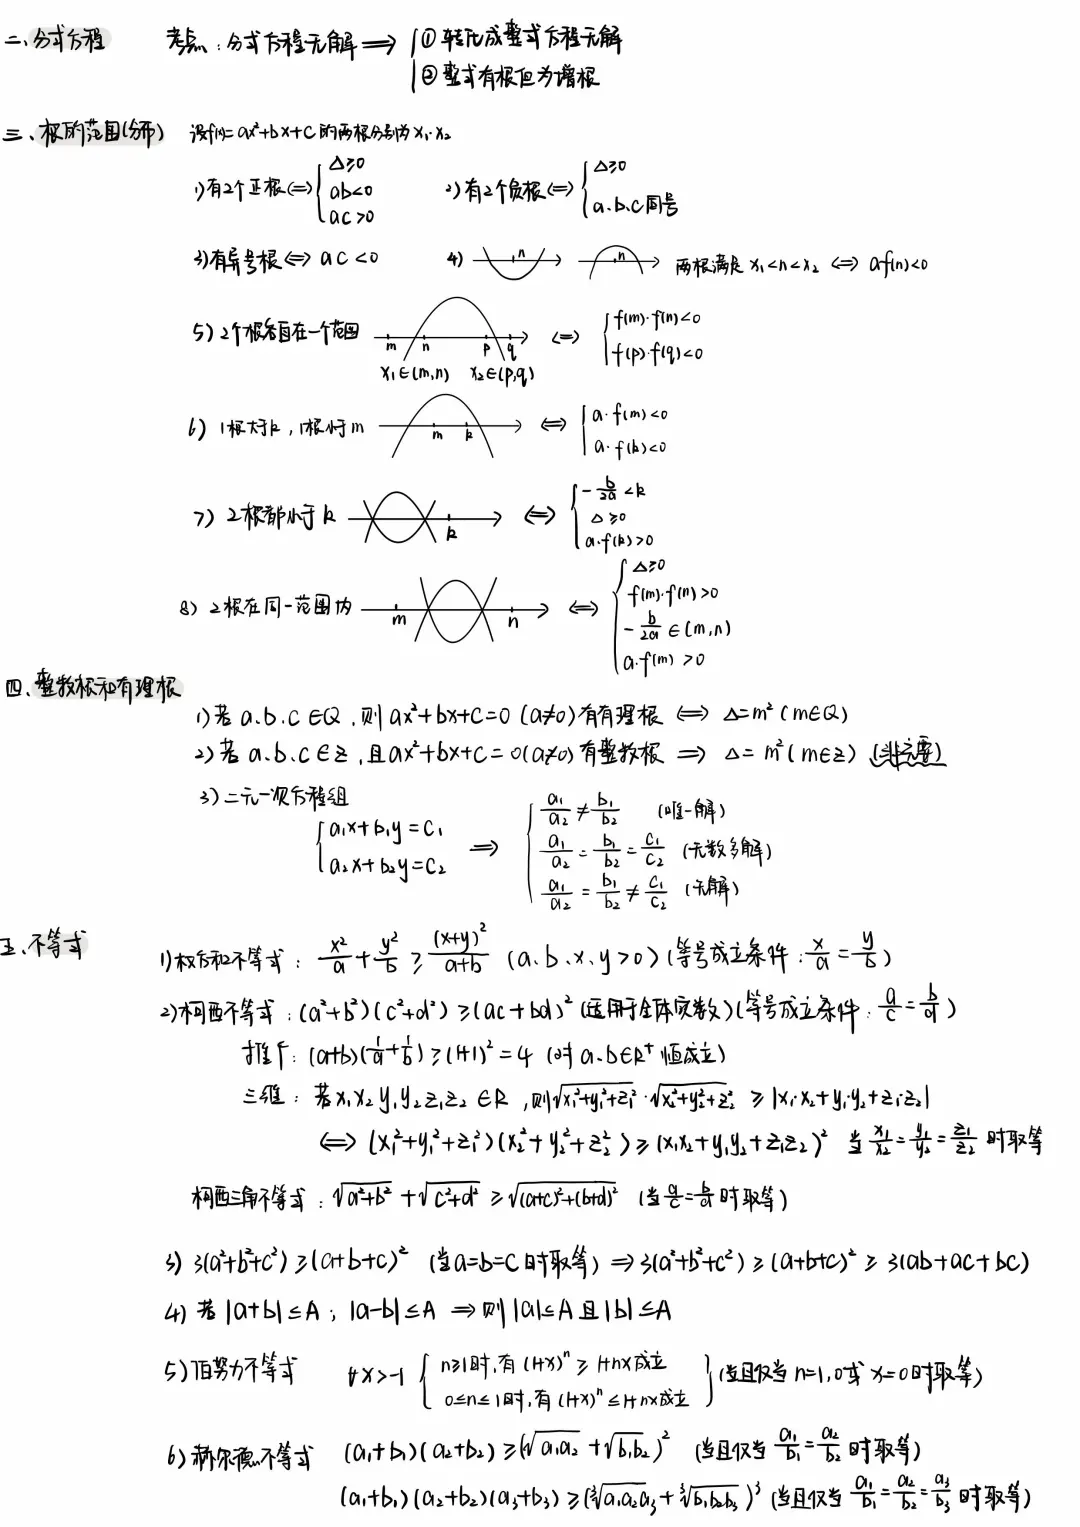 二、分式方程 考点：分式方程无解 ⟹ { ① 转化成整式方程无解
② 整式有根但为增根
三、根的范围(分布) 设f(x)=ax²+bx+c的两根分别为x₁·x₂
1)有2个正根⟺ { Δ≥0 ab<0 ac>0
2)有2个负根⟺ { Δ≥0 a.b.c同号
3)有异号根⟺ ac<0
4) n n 两根满足 x₁<n<x₂ ⟺ af(n)<0
5) 2个根各自在一个范围 m n p q ⟺ { f(m)·f(n)<0 f(p)·f(q)<0
x₁∈(m,n) x₂∈(p,q)
6) 1根大于k，1根小于m m k ⟺ { a·f(m)<0 a·f(k)<0
7) 2根都小于k k ⟺ { -b/2a<k Δ≥0 a·f(k)>0
8) 2根在同一范围内 m n ⟺ { Δ≥0 f(m)·f(n)>0 -b/2a∈(m,n) a·f(m)>0
四、整数根和有理根
1)若a.b.c∈Q，则ax²+bx+c=0 (a≠0)有有理根 ⟺ Δ=m² (m∈Q)
2)若a.b.c∈Z，且ax²+bx+c=0(a≠0)有整数根 ⟹ Δ=m²(m∈Z) (非充要)
3)二元一次方程组
{ a₁x+b₁y=c₁ a₂x+b₂y=c₂ ⟹ { a₁/a₂≠b₁/b₂ (唯一解)
a₁/a₂=b₁/b₂=c₁/c₂ (无数多解)
a₁/a₂=b₁/b₂≠c₁/c₂ (无解)
五、不等式
1)权方和不等式：x²/a+y²/b≥(x+y)²/(a+b) (a.b.x.y>0)(等号成立条件：x/a=y/b)
2)柯西不等式：(a²+b²)(c²+d²)≥(ac+bd)²(适用于全体实数)(等号成立条件：a/c=b/d)
推广：(a+b)(1/a+1/b)≥(1+1)²=4 (对a.b∈R⁺恒成立)
三维：若x₁x₂y₁y₂z₁z₂∈R，则√(x₁²+y₁²+z₁²)·√(x₂²+y₂²+z₂²)≥|x₁·x₂+y₁·y₂+z₁·z₂|
⟺ (x₁²+y₁²+z₁²)(x₂²+y₂²+z₂²)≥(x₁x₂+y₁y₂+z₁z₂)² 当x₁/x₂=y₁/y₂=z₁/z₂时取等
柯西三角不等式：√(a²+b²)+√(c²+d²)≥√((a+c)²+(b+d)²) (当a/c=b/d时取等)
3) 3(a²+b²+c²)≥(a+b+c)² (当a=b=c时取等) ⟹ 3(a²+b²+c²)≥(a+b+c)²≥3(ab+ac+bc)
4) 若|a+b|≤A；|a-b|≤A ⟹ 则|a|≤A且|b|≤A
5)伯努力不等式 ∀x>-1 { n≥1时,有(1+x)ⁿ≥1+nx成立
0≤n≤1时,有(1+x)ⁿ≤1+nx成立 } (当且仅当n=1,0或x=0时取等)
6)赫尔德不等式 (a₁+b₁)(a₂+b₂)≥(√(a₁a₂)+√(b₁b₂))² (当且仅当a₁/b₁=a₂/b₂时取等)
(a₁+b₁)(a₂+b₂)(a₃+b₃)≥(∛(a₁a₂a₃)+∛(b₁b₂b₃))³ (当且仅当a₁/b₁=a₂/b₂=a₃/b₃时取等)